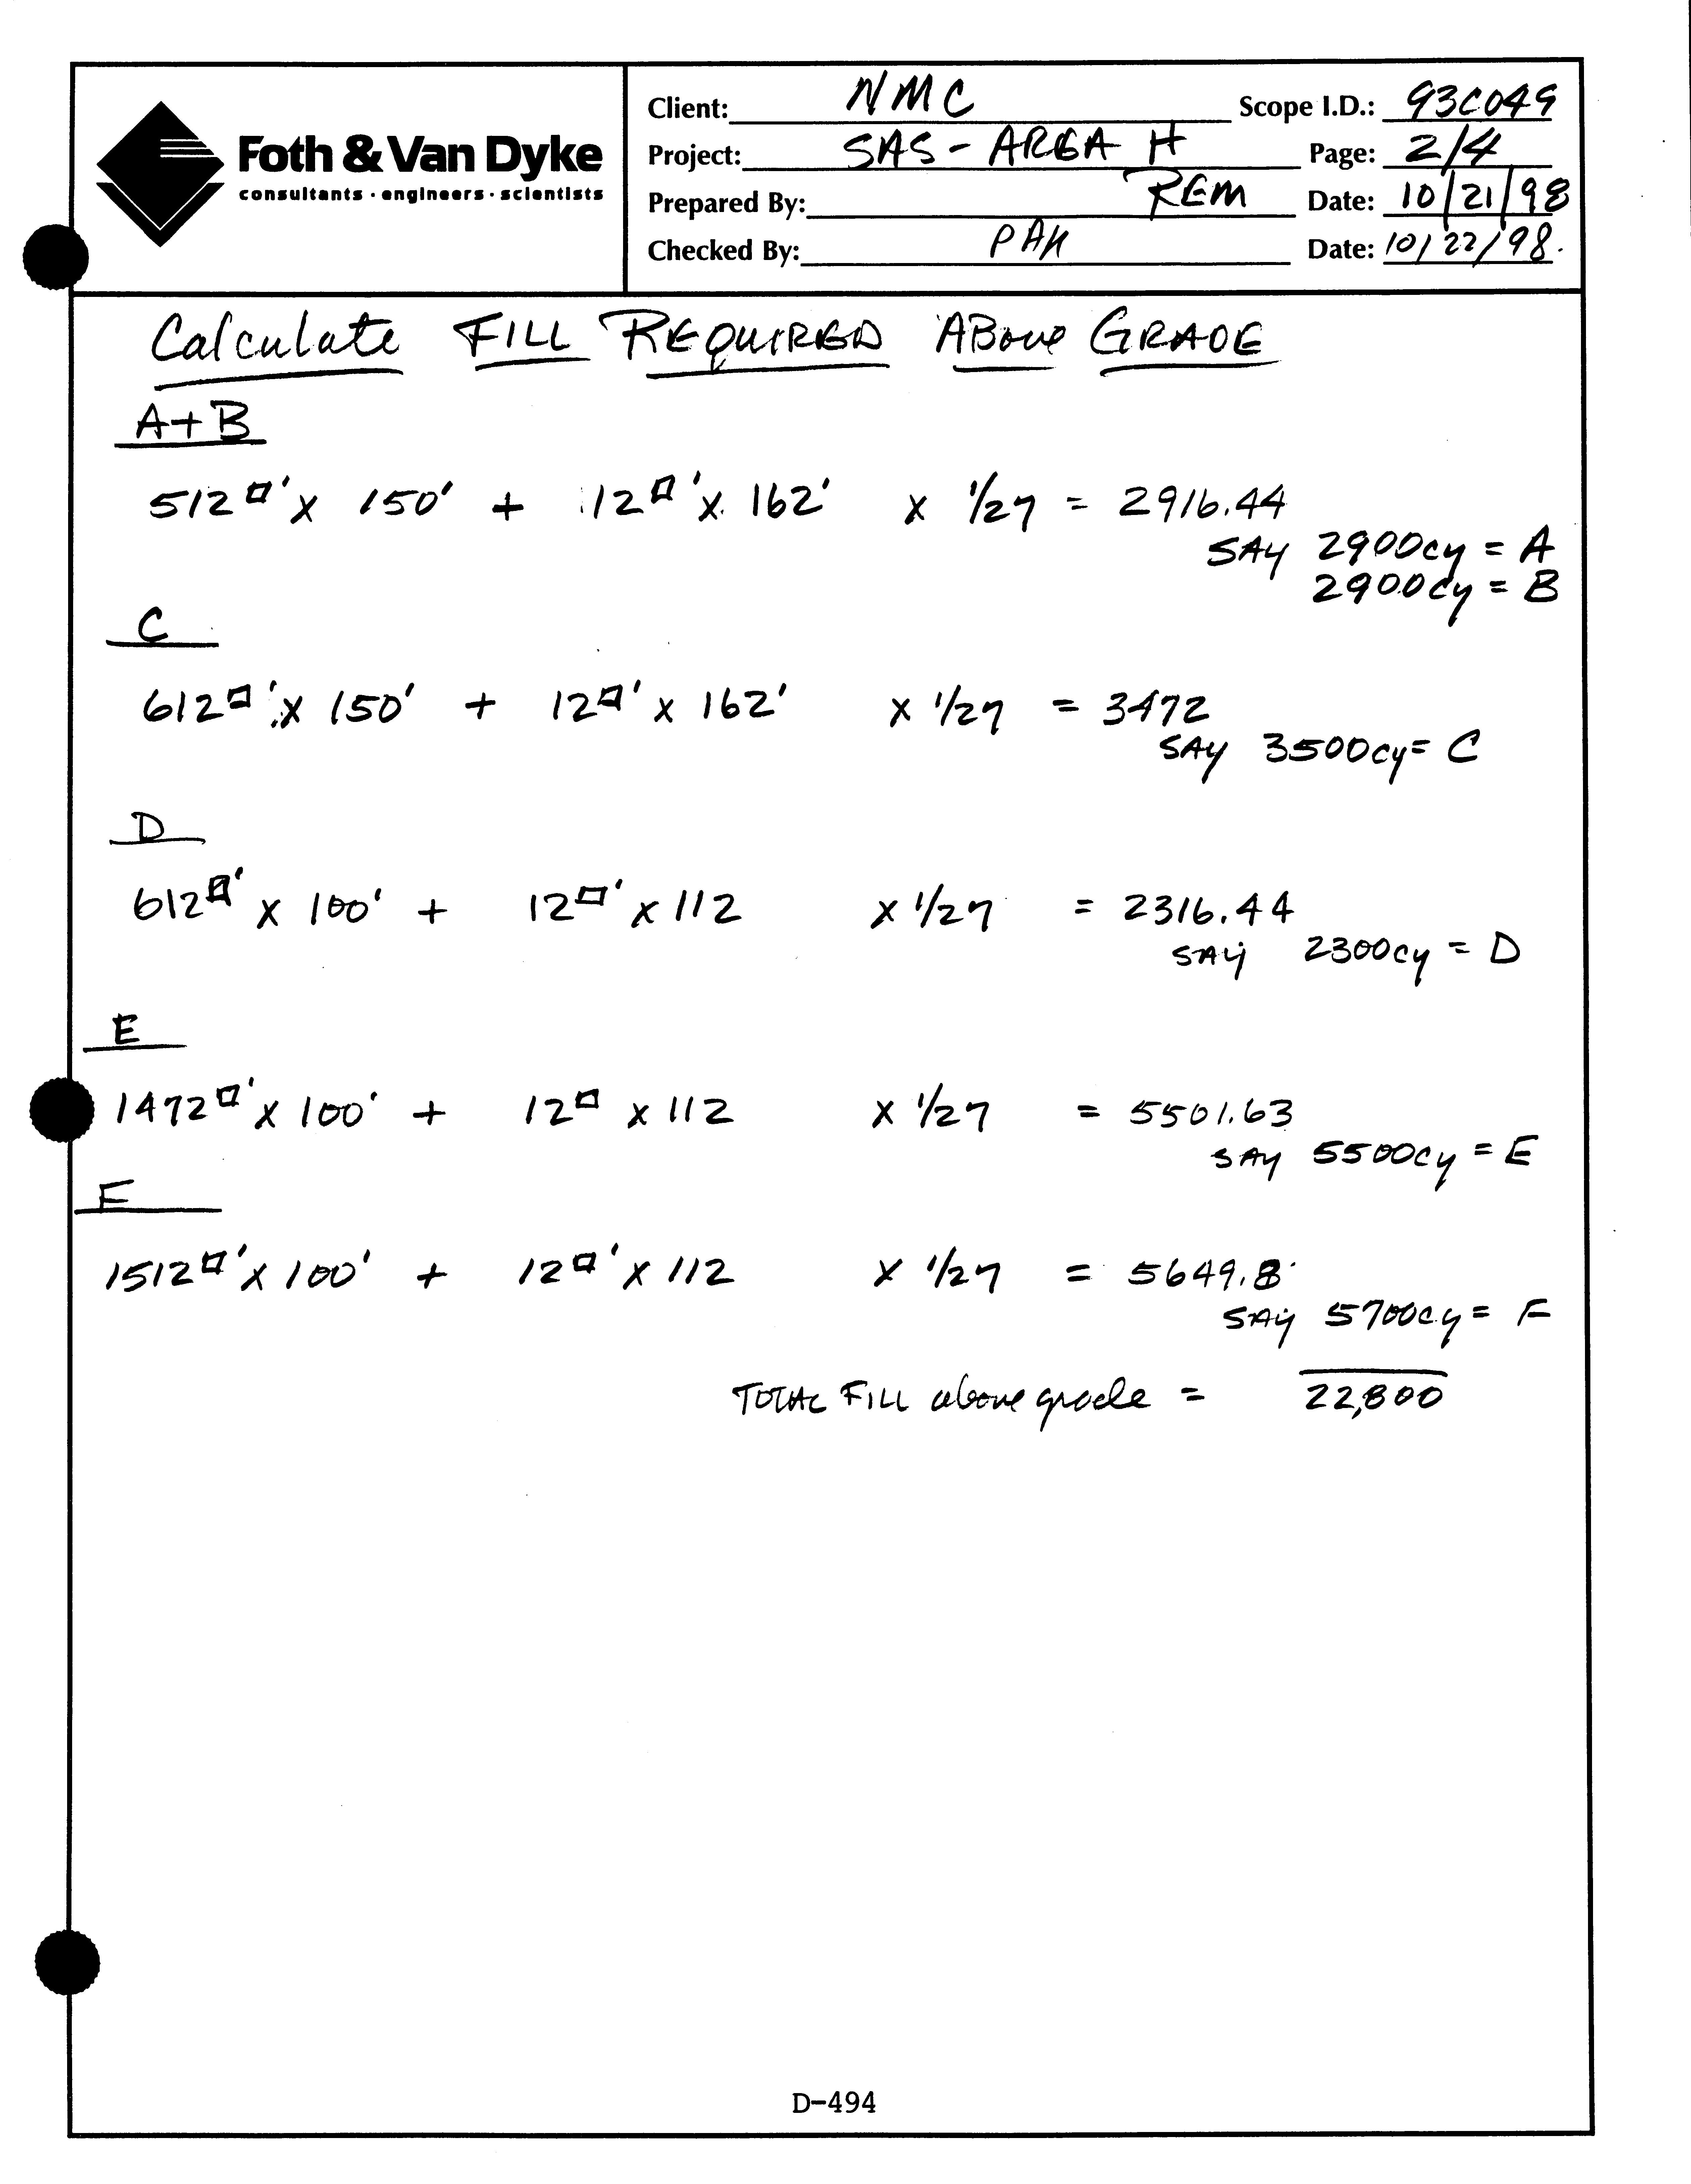 Foth & Van Dyke
consultants · engineers · scientists
Client: NMC Scope I.D.: 93C049
Project: SAS - AREA H Page: 2/4
Prepared By: REM Date: 10/21/98
Checked By: PAK Date: 10/22/98.
Calculate FILL REQUIRED ABove GRADE
A+B
512□' x 150' + 12□' x 162' x 1/27 = 2916.44
SAY 2900cy = A
2900cy = B
C
612□' x 150' + 12□' x 162' x 1/27 = 3472
SAY 3500cy = C
D
612□' x 100' + 12□' x 112 x 1/27 = 2316.44
SAY 2300cy = D
E
1472□' x 100' + 12□ x 112 x 1/27 = 5501.63
SAY 5500cy = E
F
1512□' x 100' + 12□' x 112 x 1/27 = 5649.8
SAY 5700cy = F
TOTAL FILL above grade = 22,800
D-494